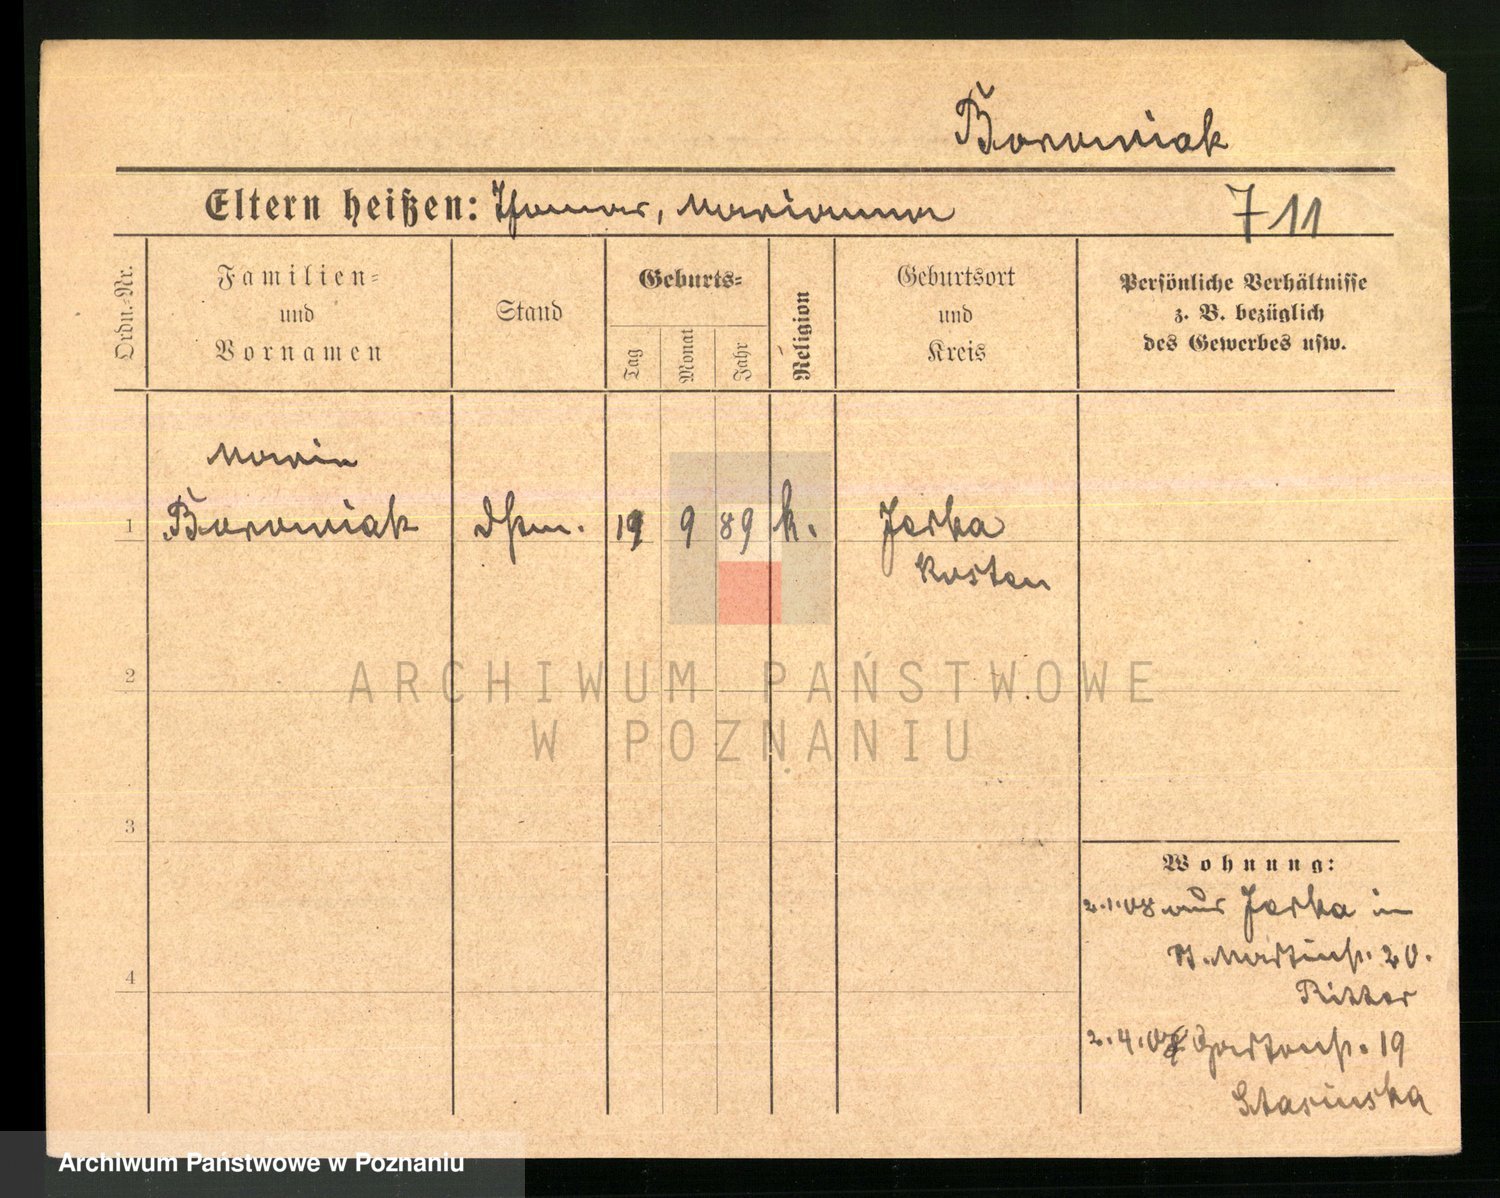 Boroniak
Eltern heißen: Thomas, Marianna
711
Ordn.-Nr.
Familien-
und
Vornamen
Stand
Geburts-
Tag
Monat
Jahr
Religion
Geburtsort
und
Kreis
Persönliche Verhältnisse
z. B. bezüglich
des Gewerbes usw.
Marie
1 Boroniak 19 9 89 k. Jerka
Kosten
2
3
4
Wohnung:
2.1.08 aus Jerka in
St. Martinstr. 20.
Ritter
2.4.08 Gartenstr. 19
Stasinska
ARCHIWUM PAŃSTWOWE
W POZNANIU
Archiwum Państwowe w Poznaniu